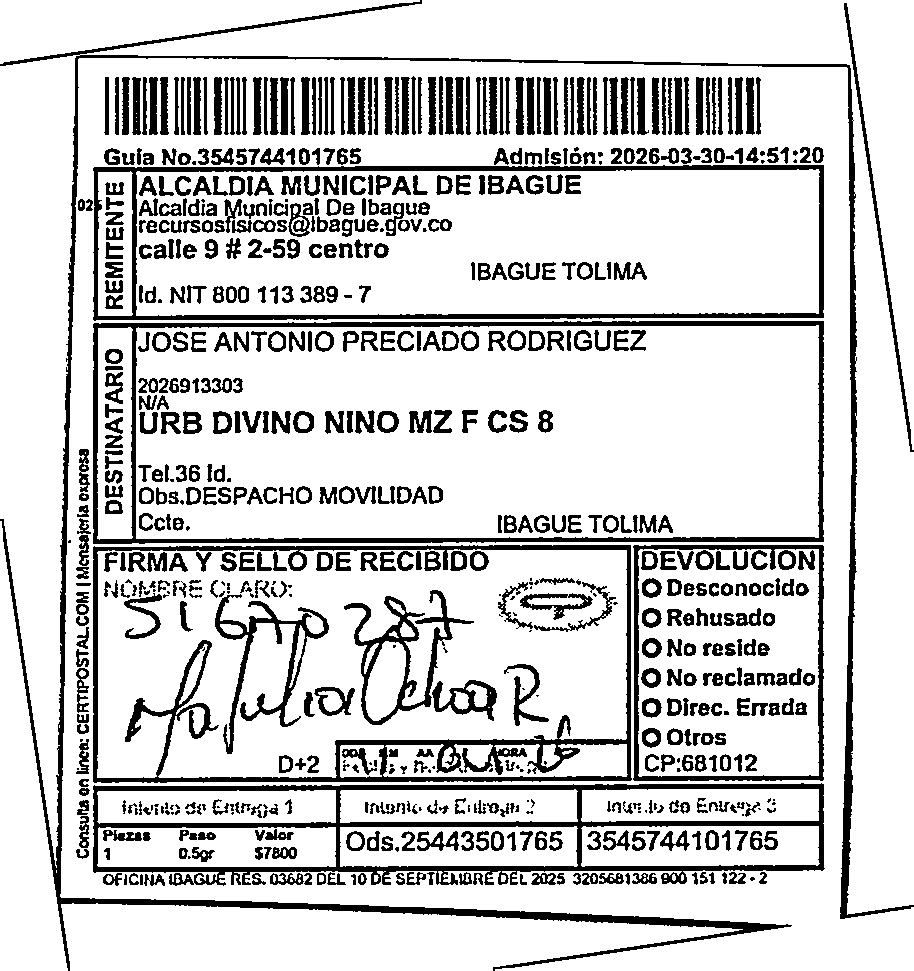 Guía No.3545744101765 Admisión: 2026-03-30-14:51:20
REMITENTE
ALCALDIA MUNICIPAL DE IBAGUE
Alcaldia Municipal De Ibague
recursosfisicos@ibague.gov.co
calle 9 # 2-59 centro
IBAGUE TOLIMA
Id. NIT 800 113 389 - 7
DESTINATARIO
JOSE ANTONIO PRECIADO RODRIGUEZ
2026913303
N/A
URB DIVINO NINO MZ F CS 8
Tel.36 Id.
Obs.DESPACHO MOVILIDAD
Ccte.
IBAGUE TOLIMA
Consulta en linea: CERTIPOSTAL.COM | Mensajería expresa
FIRMA Y SELLO DE RECIBIDO
NOMBRE CLARO:
51670287
Ma Julia Ochoa R
D+2
DEVOLUCION
Desconocido
Rehusado
No reside
No reclamado
Direc. Errada
Otros
CP:681012
Intento de Entrega 1 Intento de Entrega 2 Intento de Entrega 3
Piezas Peso Valor
1 0.5gr $7800
Ods.25443501765 3545744101765
OFICINA IBAGUE RES. 03682 DEL 10 DE SEPTIEMBRE DEL 2025 3205681386 900 151 122 - 2